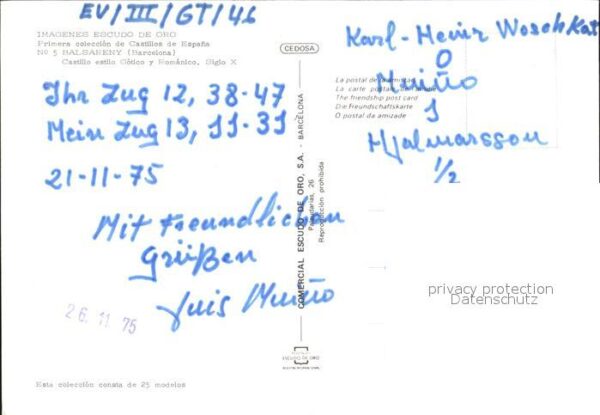 EV/III/GT/46
IMAGENES ESCUDO DE ORO
Primera colección de Castillos de España
Nº 5 BALSARENY (Barcelona)
Castillo estilo Gótico y Románico, Siglo X
Ihr Zug 12, 38-47
Mein Zug 13, 11-31
21-11-75
Mit freundlichen
Grüßen
Luis Muiño
26. 11. 75
Esta colección consta de 25 modelos
CEDOSA
COMERCIAL ESCUDO DE ORO, S.A. - BARCELONA
26
Reproducción prohibida
ESCUDO DE ORO
Karl-Heinz Woschkat
0
Muiño
1
Hjalmarsson
1/2
La postal de la amistad
La carte postale de l'amitié
The friendship post card
Die Freundschaftskarte
O postal da amizade
privacy protection
Datenschutz